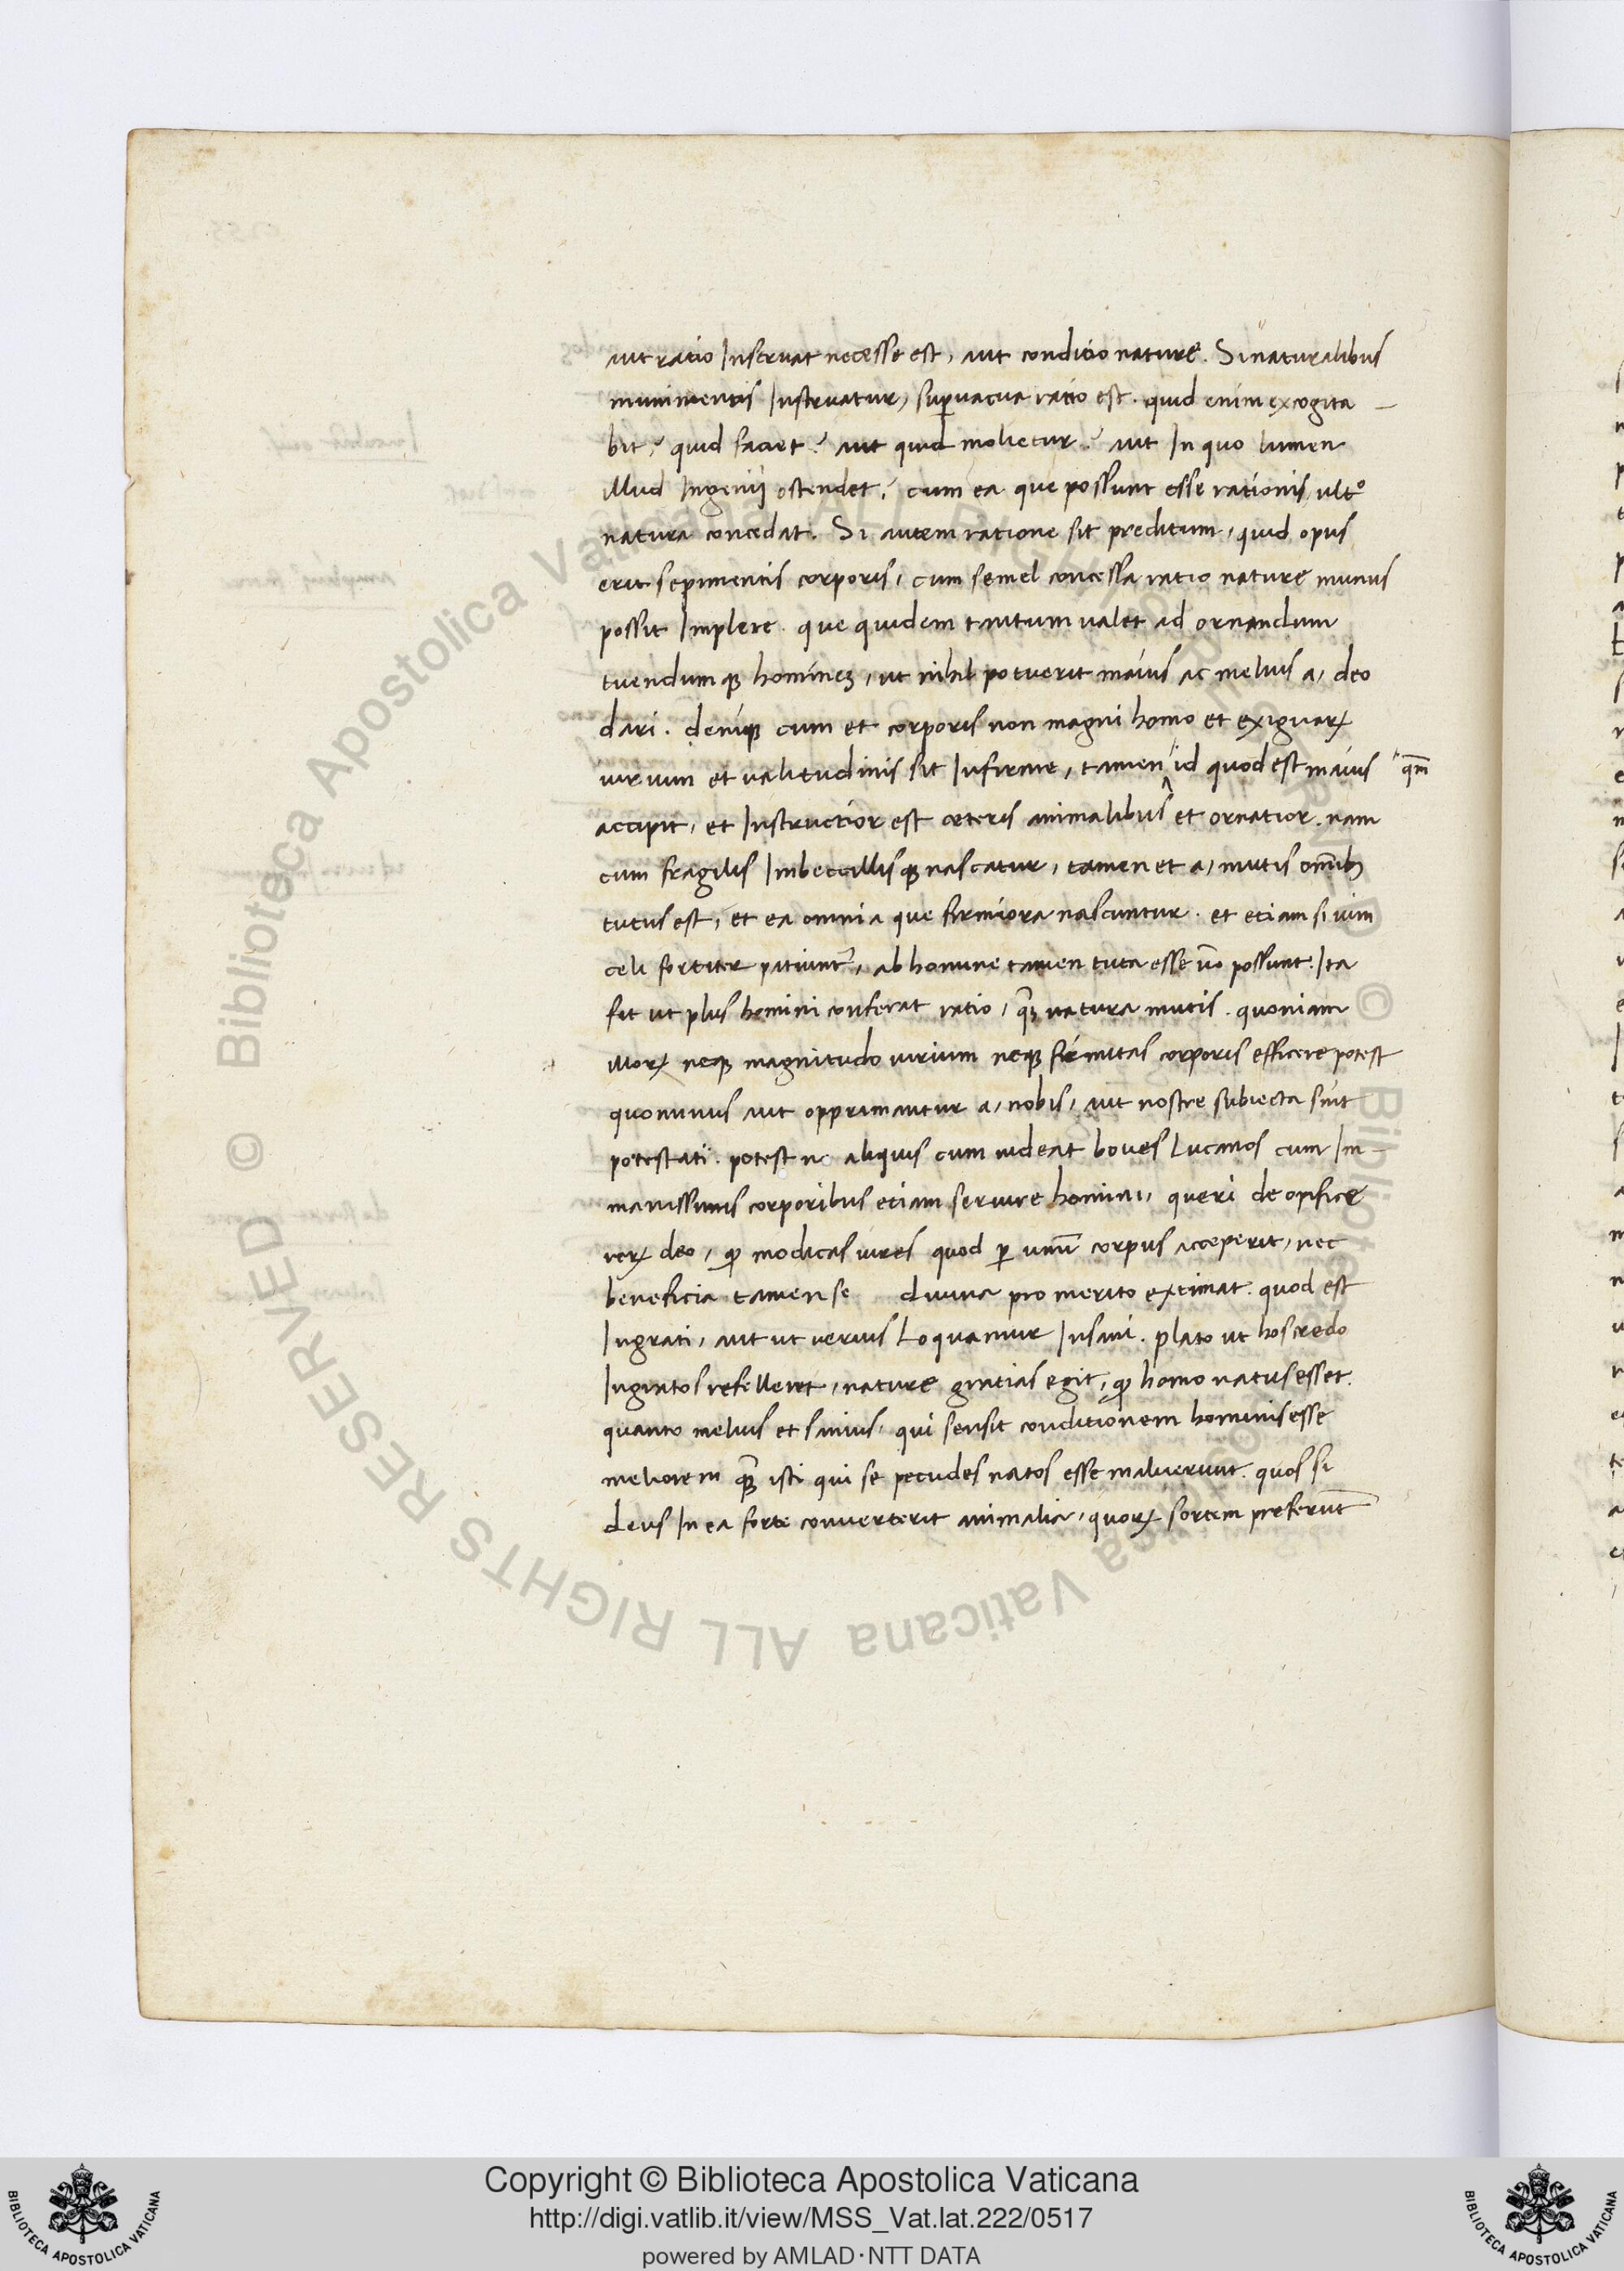 aut ratio Inseruat necesse est, aut conditio nature. Si naturalibus
munimentis Instruatur, sup̱uacua ratio est. quid enim excogita —
bit? quid faciet? aut quid molietur? aut In quo lumen
illud Ingenij ostendet? cum ea que possunt esse rationis, ultº
natura concedat. Si autem ratione sit preditum, quid opus
erit sepimentis corporis, cum semel concessa ratio nature munus
possit Implere. que quidem tantum ualet ad ornandum
tuendumqꝫ hominez, ut nihil potuerit maius ac melius a, deo
dari. deniqꝫ cum et corporis non magni homo et exiguarꝝ
uirium et ualitudinis sit Infirme, tamen id quod est maius "qm̄
accipit, et Instructior est ceteris animalibus et ornatior. nam
cum fragilis Imbecillisqꝫ nascatur, tamen et a, mutis om̄ibꝫ
tutus est, et ea omnia que firmiora nascuntur. et etiam si uim
celi fortiter patiunt᷑, ab homine tamen tuta esse n̄o possunt. Ita
fit ut plus homini conferat ratio, qꝫ̄ natura mutis. quoniam
illorꝝ neqꝫ magnitudo uirium neqꝫ firmitas corporis efficere potest
quominus aut opprimantur a, nobis, aut nostre subiecta sint
potestati. potest ne aliquis cum uideat boues Lucanos cum Im —
manissimis corporibus etiam seruire homini, queri de opifice
rerꝝ deo, ꝙ modicas uires quod ꝑ unū corpus acceperit, nec
beneficia tamen se diuina pro merito extimat. quod est
Ingrati, aut ut uerius Loquamur Insani. plato ut hos credo
Ingratos refelleret, nature gratias egit, ꝙ homo natus esset.
quanto melius et sanius, qui sensit conditionem hominis esse
meliorem qꝫ̄ isti qui se pecudes natos esse maluerunt. quos si
deus In ea forte conuerterit animalia, quorꝝ sortem preferūt
Copyright © Biblioteca Apostolica Vaticana
http://digi.vatlib.it/view/MSS_Vat.lat.222/0517
powered by AMLAD·NTT DATA
BIBLIOTECA APOSTOLICA VATICANA
BIBLIOTECA APOSTOLICA VATICANA